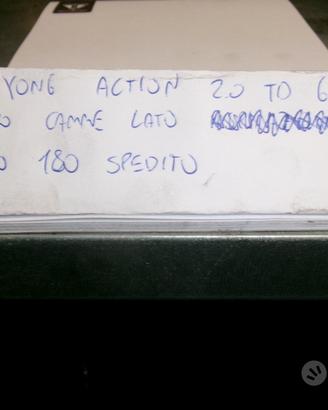 YONG ACTION 2.0 TD 6
O CAMME LATO
O 180 SPEDITO